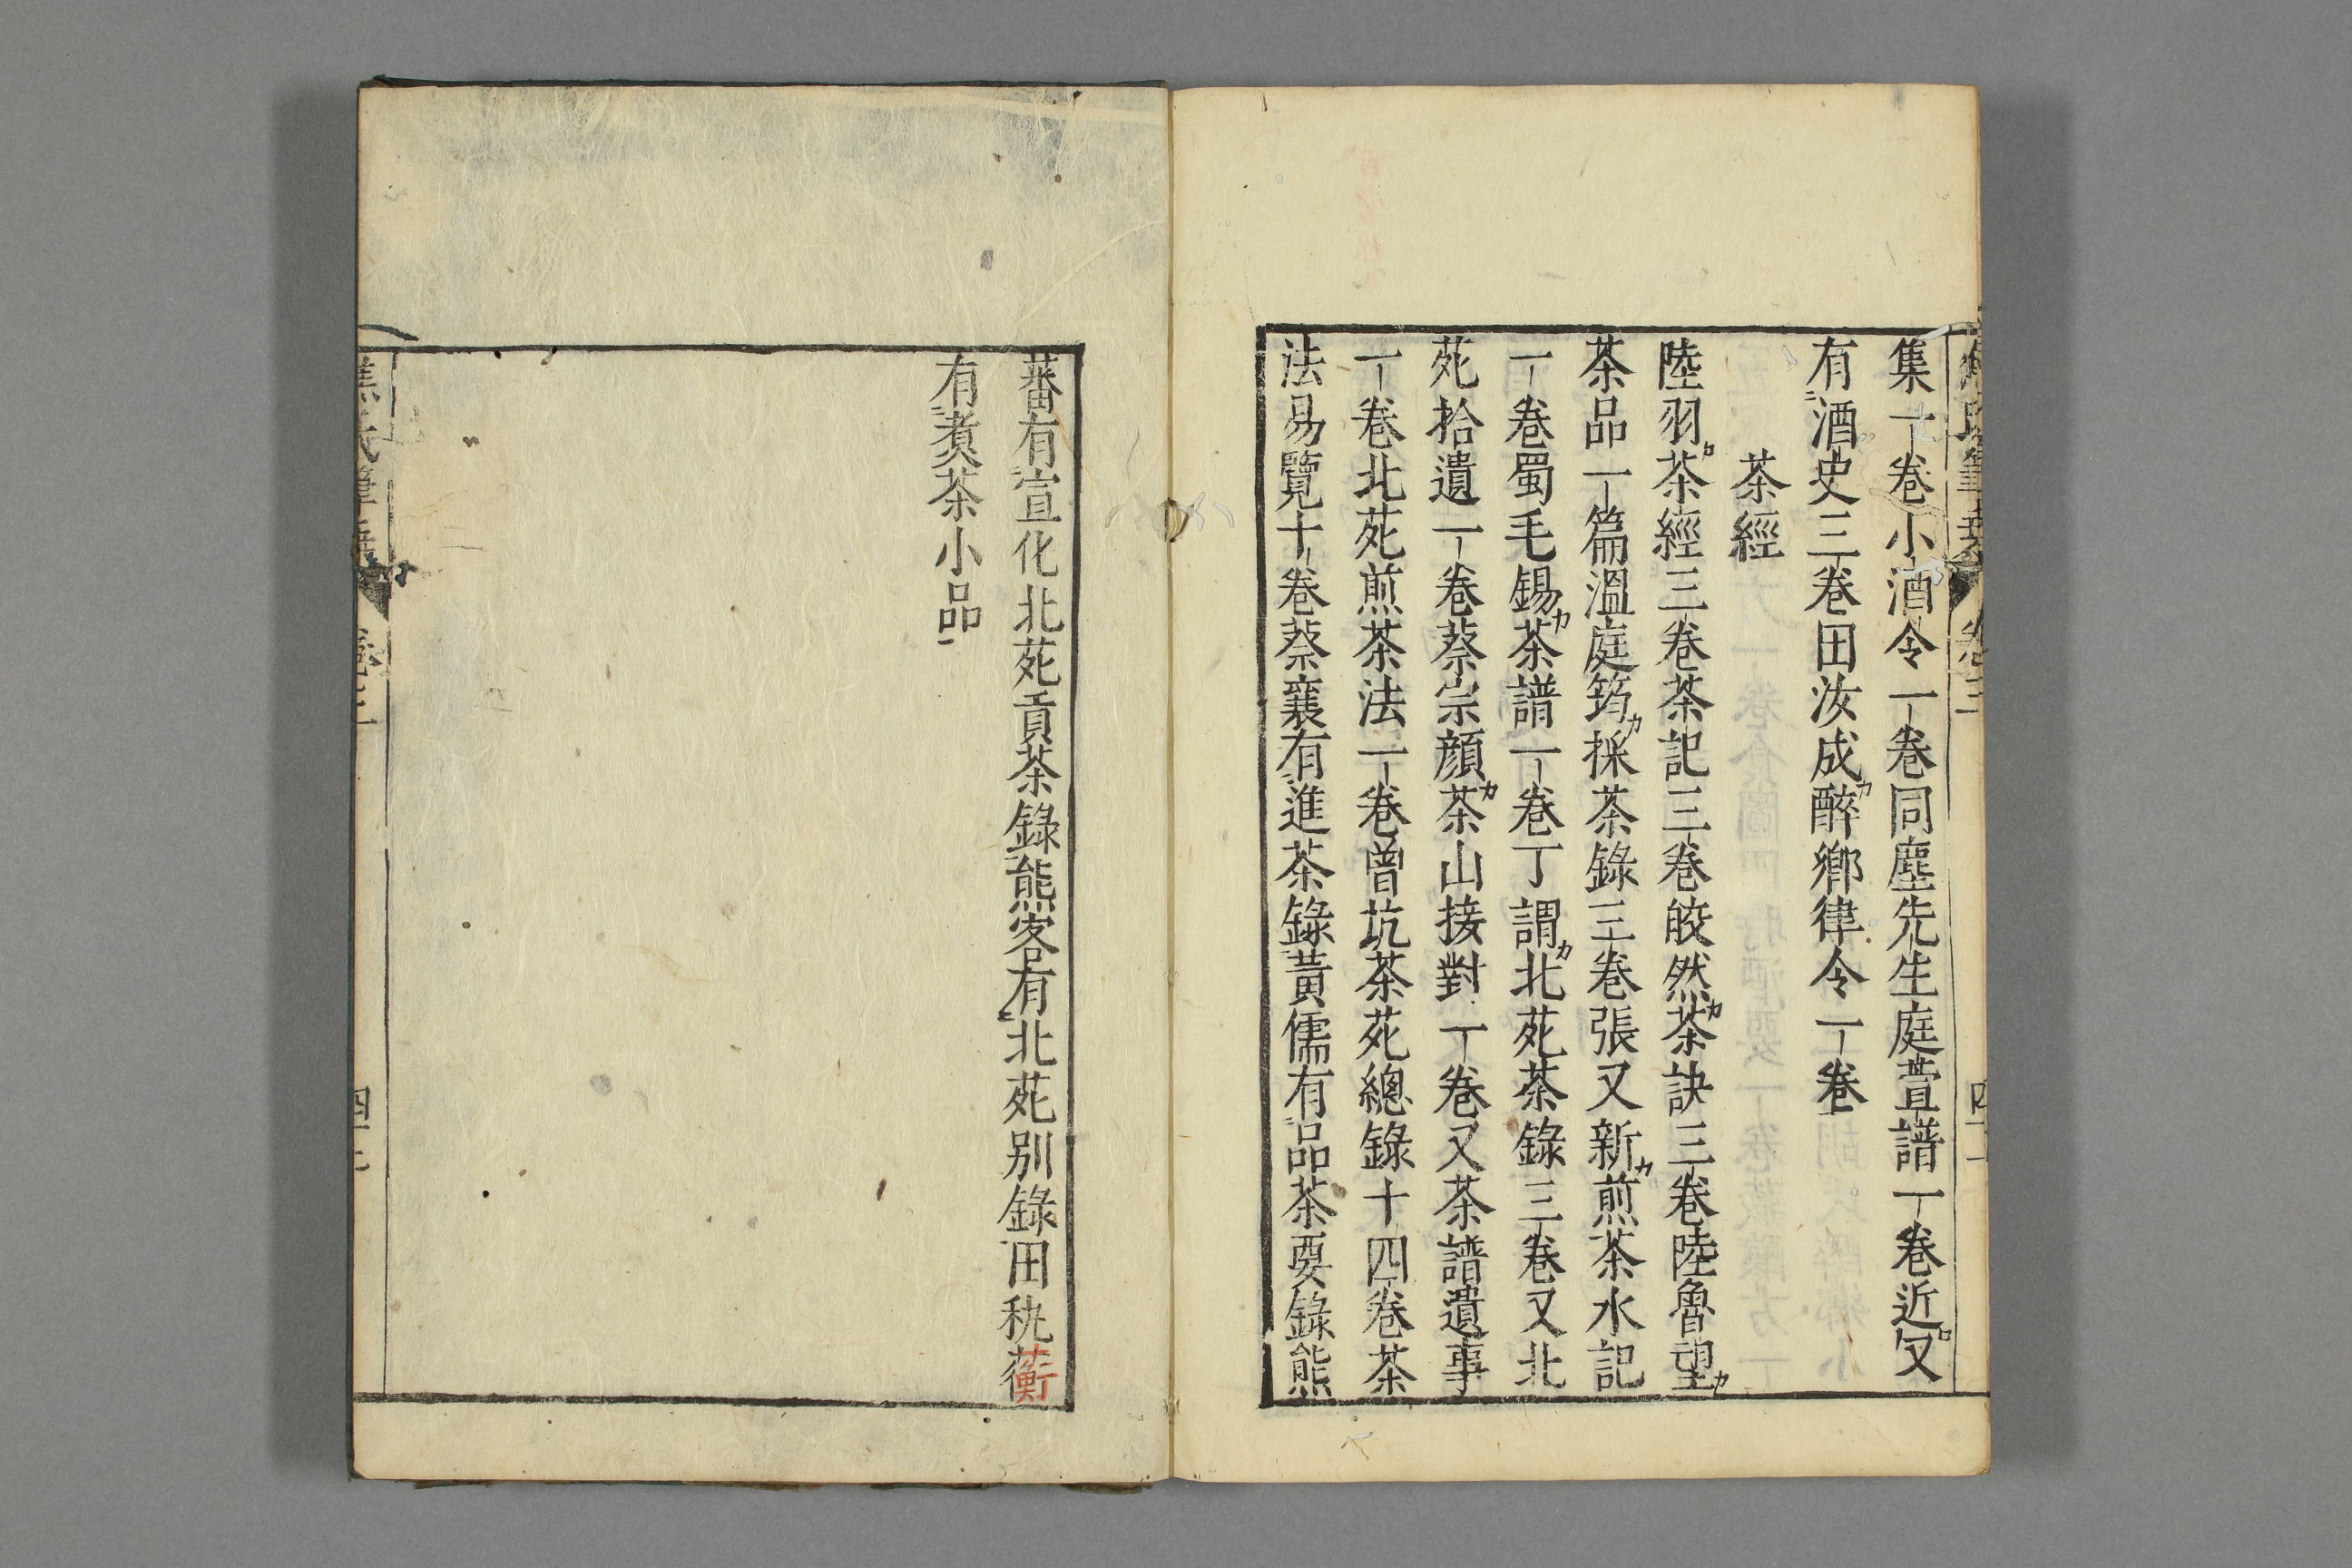 集一卷小酒令一卷同塵先生庭萱譜一卷近又
有酒史三卷田汝成醉鄉律令一卷
茶經
陸羽茶經三卷茶記三卷皎然茶訣三卷陸魯望
茶品一篇溫庭筠採茶錄三卷張又新煎茶水記
一卷蜀毛錫茶譜一卷丁謂北苑茶錄三卷又北
苑拾遺一卷蔡宗顏茶山接對一卷又茶譜遺事
一卷北苑煎茶法一卷曾坑茶苑總錄十四卷茶
法易覽十卷蔡襄有進茶錄黃儒有品茶要錄熊
蕃有宣化北苑貢茶錄熊客有北苑别錄田秇蘅
有煮茶小品